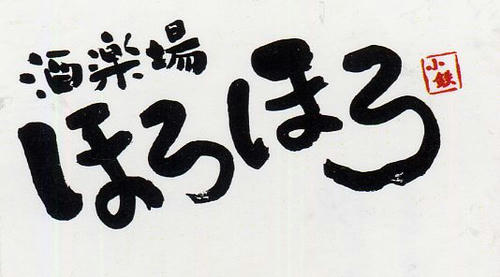 酒楽場
ほろほろ
小鉄